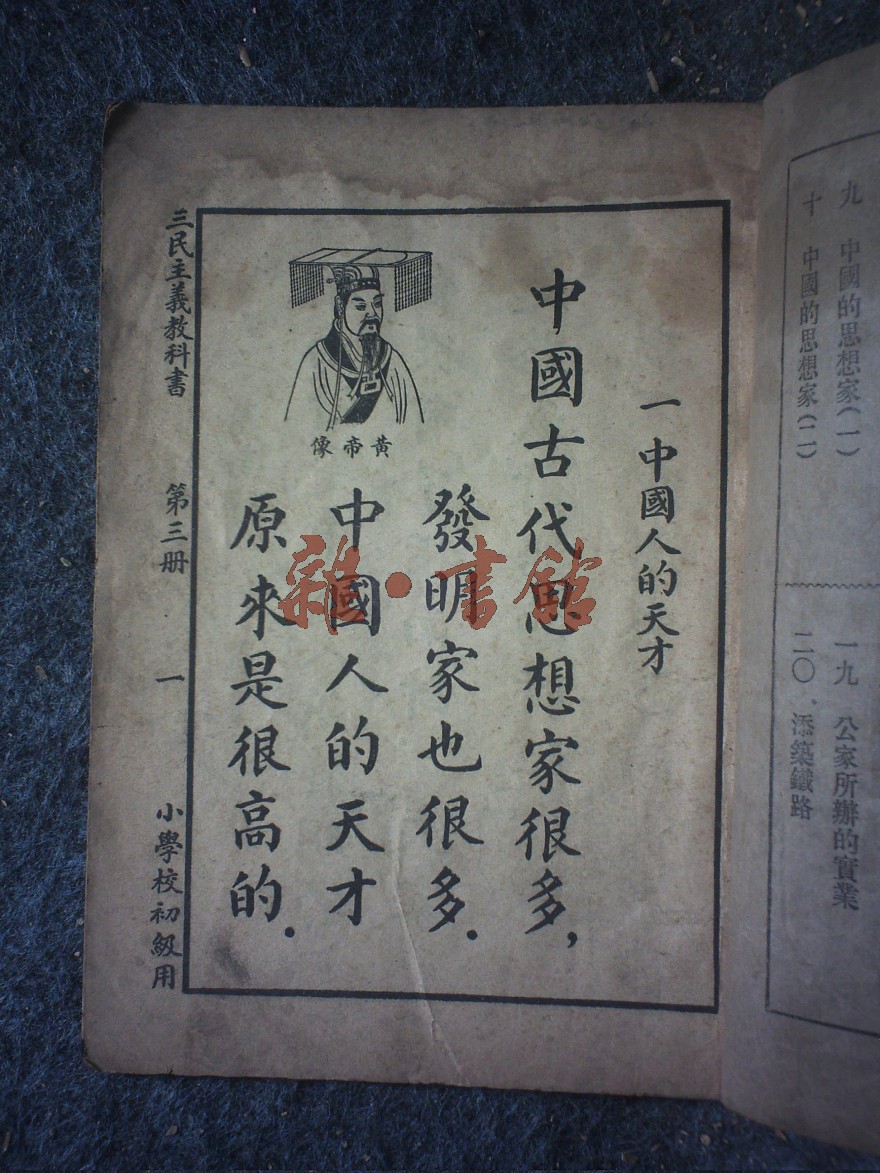 九 中國的思想家(一)
十 中國的思想家(二)
一九 公家所辦的實業
二〇、添築鐵路
一 中國人的天才
中國古代思想家很多,
發明家也很多.
中國人的天才
原來是很高的.
黃帝像
三民主義教科書 第三册 一 小學校初級用
雜·書館